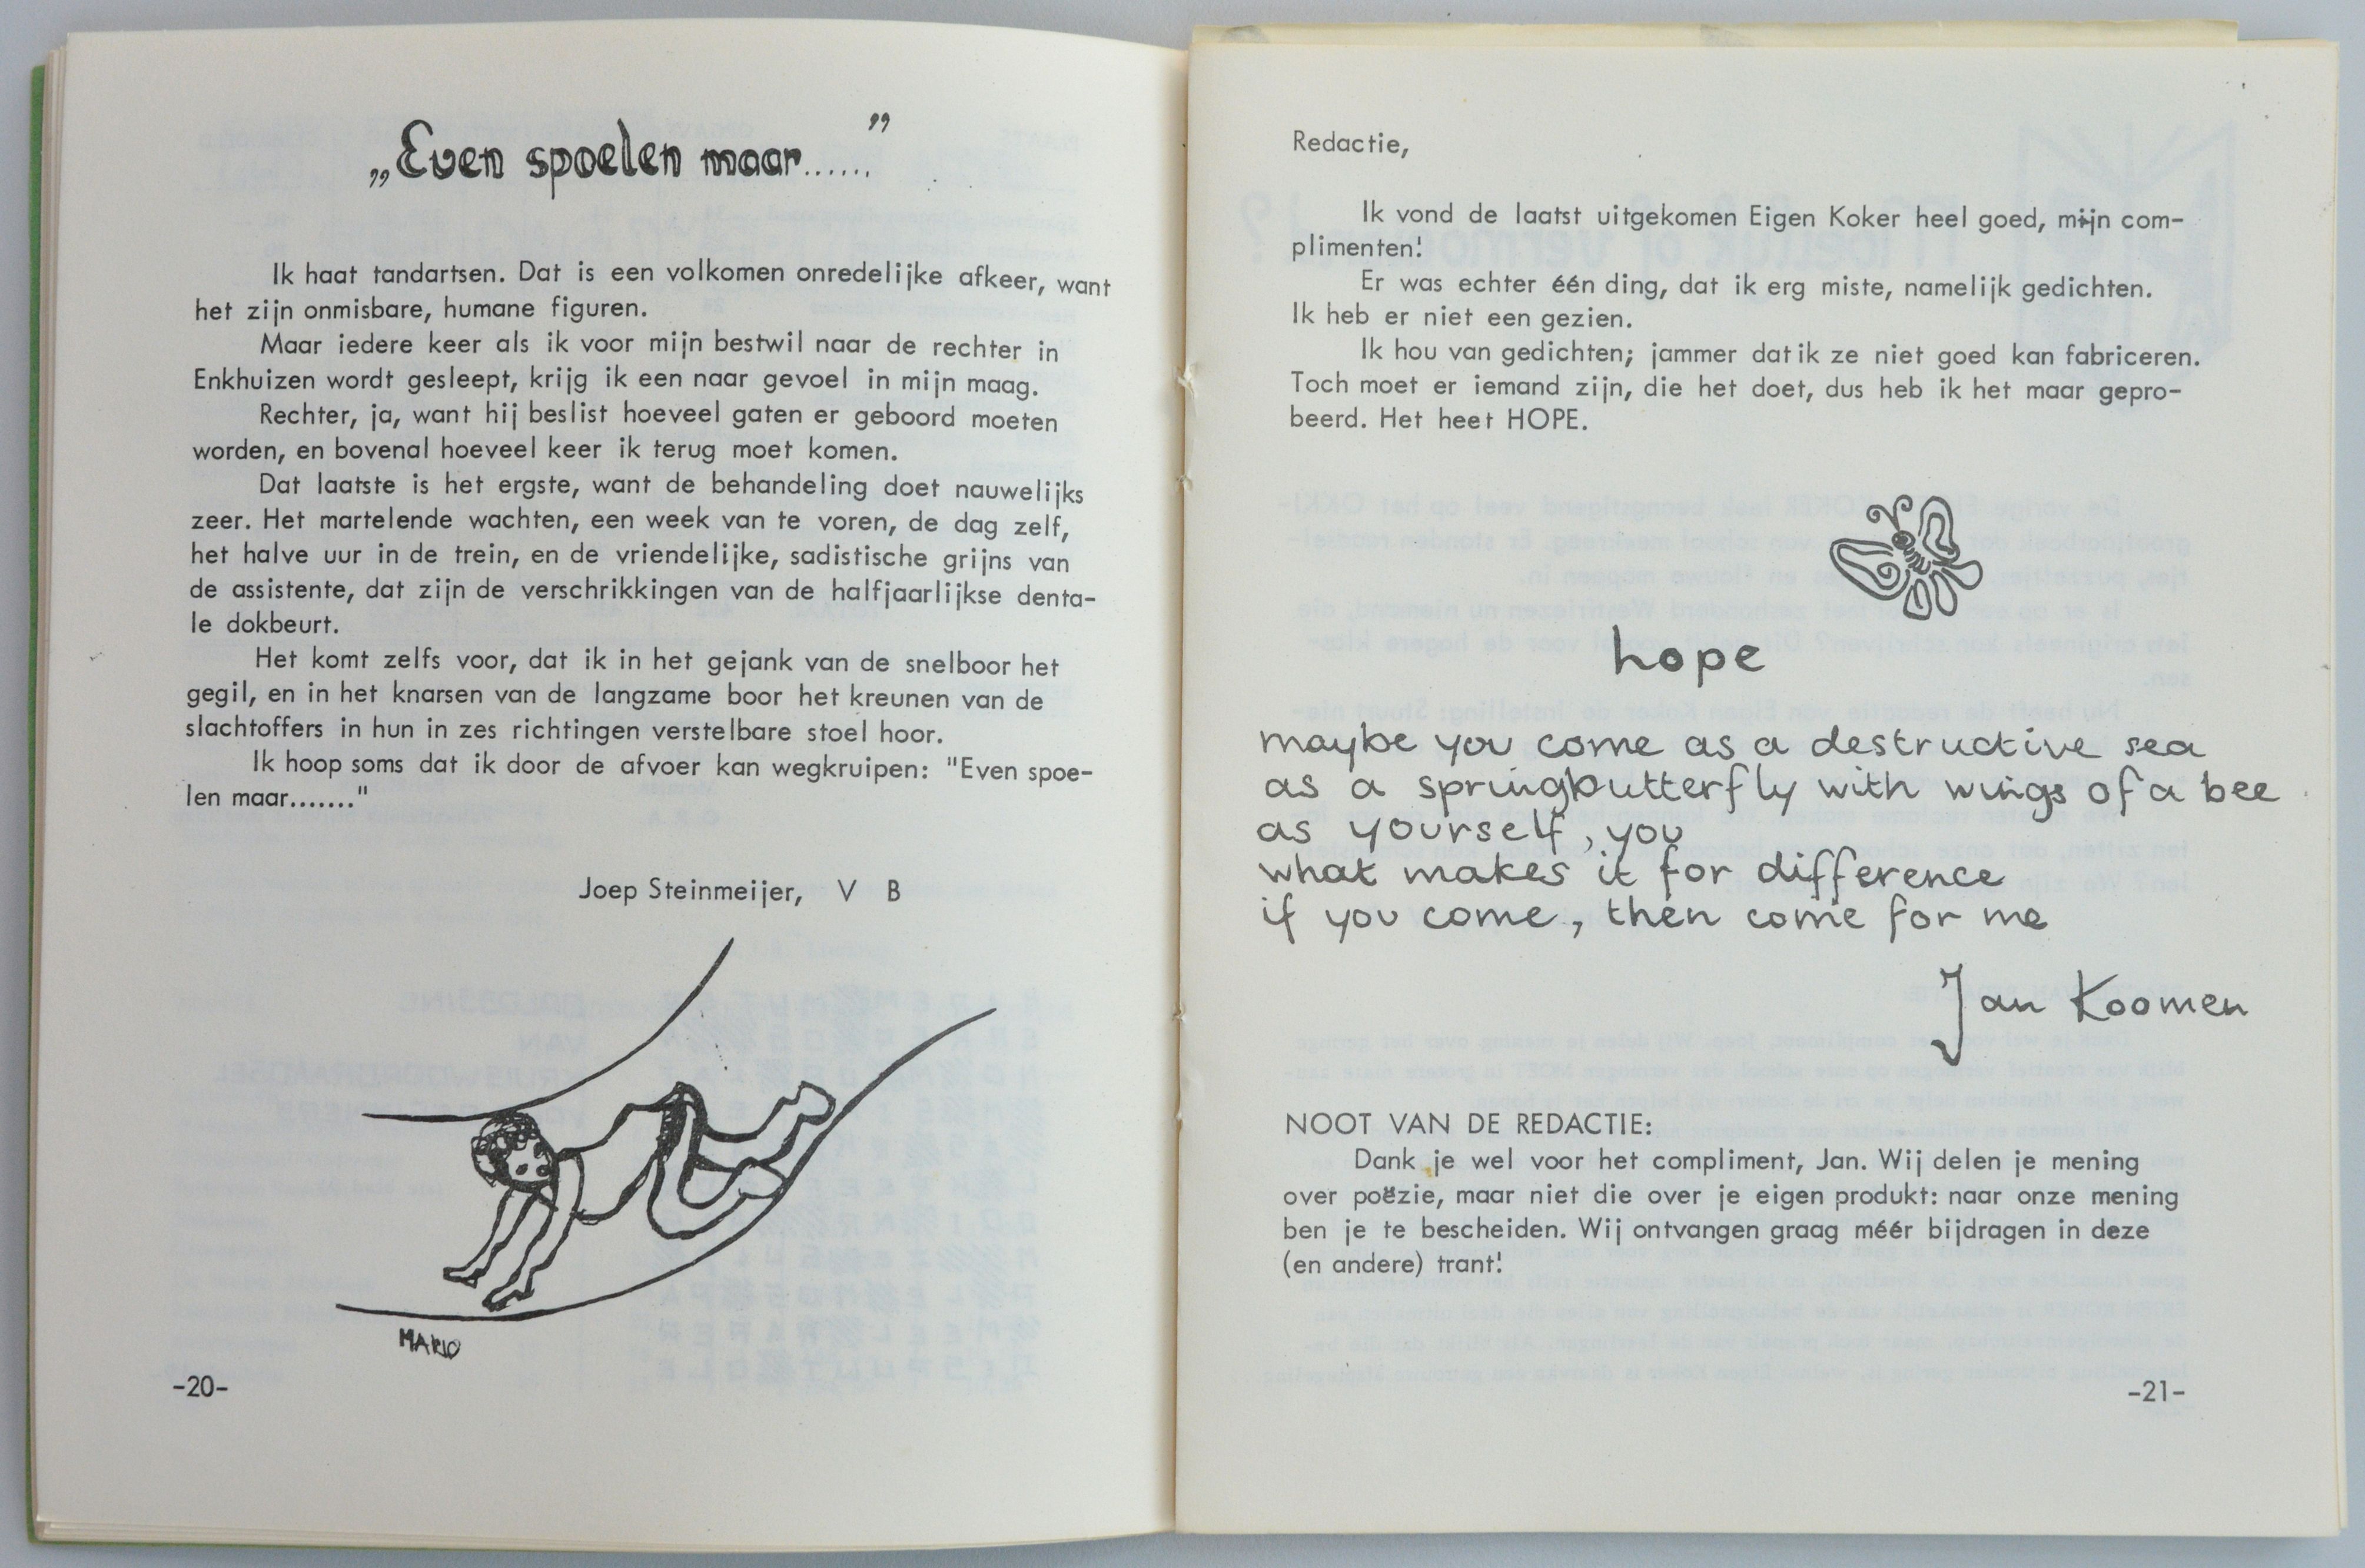 „Even spoelen maar......”
Ik haat tandartsen. Dat is een volkomen onredelijke afkeer, want
het zijn onmisbare, humane figuren.
Maar iedere keer als ik voor mijn bestwil naar de rechter in
Enkhuizen wordt gesleept, krijg ik een naar gevoel in mijn maag.
Rechter, ja, want hij beslist hoeveel gaten er geboord moeten
worden, en bovenal hoeveel keer ik terug moet komen.
Dat laatste is het ergste, want de behandeling doet nauwelijks
zeer. Het martelende wachten, een week van te voren, de dag zelf,
het halve uur in de trein, en de vriendelijke, sadistische grijns van
de assistente, dat zijn de verschrikkingen van de halfjaarlijkse denta-
le dokbeurt.
Het komt zelfs voor, dat ik in het gejank van de snelboor het
gegil, en in het knarsen van de langzame boor het kreunen van de
slachtoffers in hun in zes richtingen verstelbare stoel hoor.
Ik hoop soms dat ik door de afvoer kan wegkruipen: "Even spoe-
len maar......."
Joep Steinmeijer, V B
MARIO
-20-
Redactie,
Ik vond de laatst uitgekomen Eigen Koker heel goed, mijn com-
plimenten!
Er was echter één ding, dat ik erg miste, namelijk gedichten.
Ik heb er niet een gezien.
Ik hou van gedichten; jammer dat ik ze niet goed kan fabriceren.
Toch moet er iemand zijn, die het doet, dus heb ik het maar gepro-
beerd. Het heet HOPE.
hope
maybe you come as a destructive sea
as a springbutterfly with wings of a bee
as yourself, you
what makes it for difference
if you come, then come for me
Jan Koomen
NOOT VAN DE REDACTIE:
Dank je wel voor het compliment, Jan. Wij delen je mening
over poëzie, maar niet die over je eigen produkt: naar onze mening
ben je te bescheiden. Wij ontvangen graag méér bijdragen in deze
(en andere) trant!
-21-